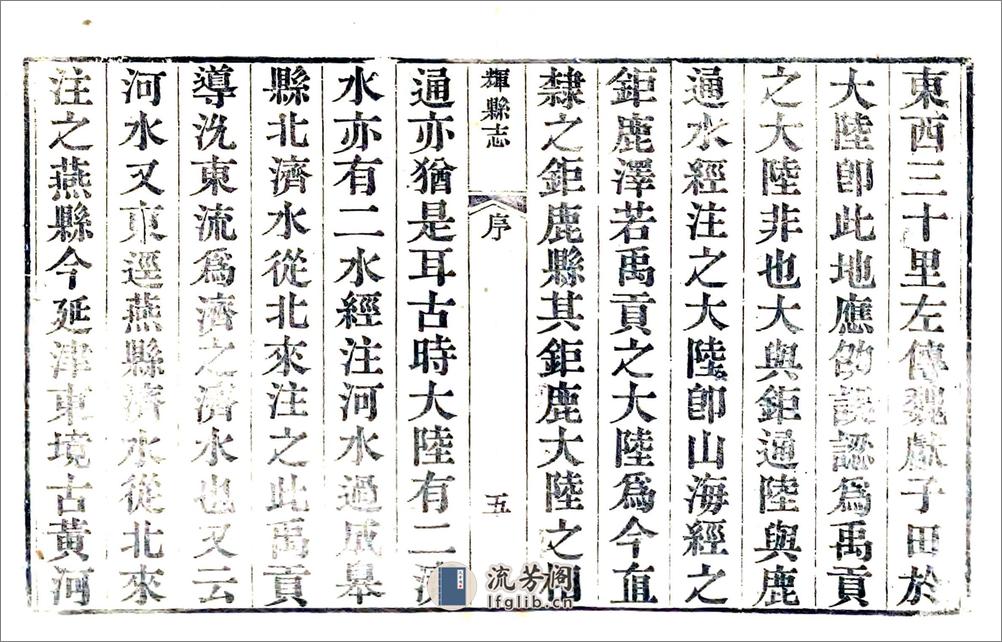 東西三十里左傳魏獻子田於
大陸卽此地應劭誤認爲禹貢
之大陸非也大與鉅通陸與鹿
通水經注之大陸卽山海經之
鉅鹿澤若禹貢之大陸爲今直
隸之鉅鹿縣其鉅鹿大陸之相
輝縣志
序
五
通亦猶是耳古時大陸有二濟
水亦有二水經注河水過成皋
縣北濟水從北來注之此禹貢
導沇東流爲濟之濟水也又云
河水又東逕燕縣濟水從北來
注之燕縣今延津東境古黃河
流芳閣
lfglib.cn